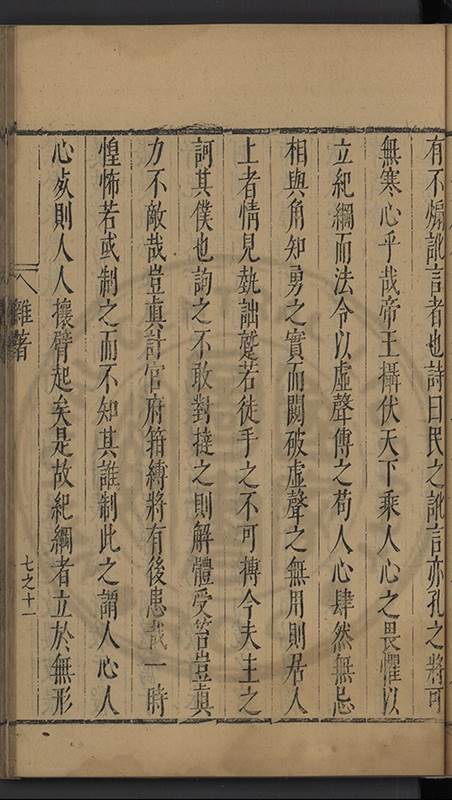 有不煽訛言者也詩曰民之訛言亦孔之將可
無寒心乎哉帝王攝伏天下乘人心之畏懼以
立紀綱而法令以虛聲傳之茍人心肆然無忌
相與角知勇之實而闚破虛聲之無用則居人
上者情見埶詘蹙若徒手之不可摶今夫主之
訶其僕也詢之不敢對撻之則解體受笞豈真
力不敵哉豈真計官府箝縛將有後患哉一時
惶怖若或制之而不知其誰制此之謂人心人
心𡴭則人人攘臂起矣是故紀綱者立於無形
雜著
七之十一